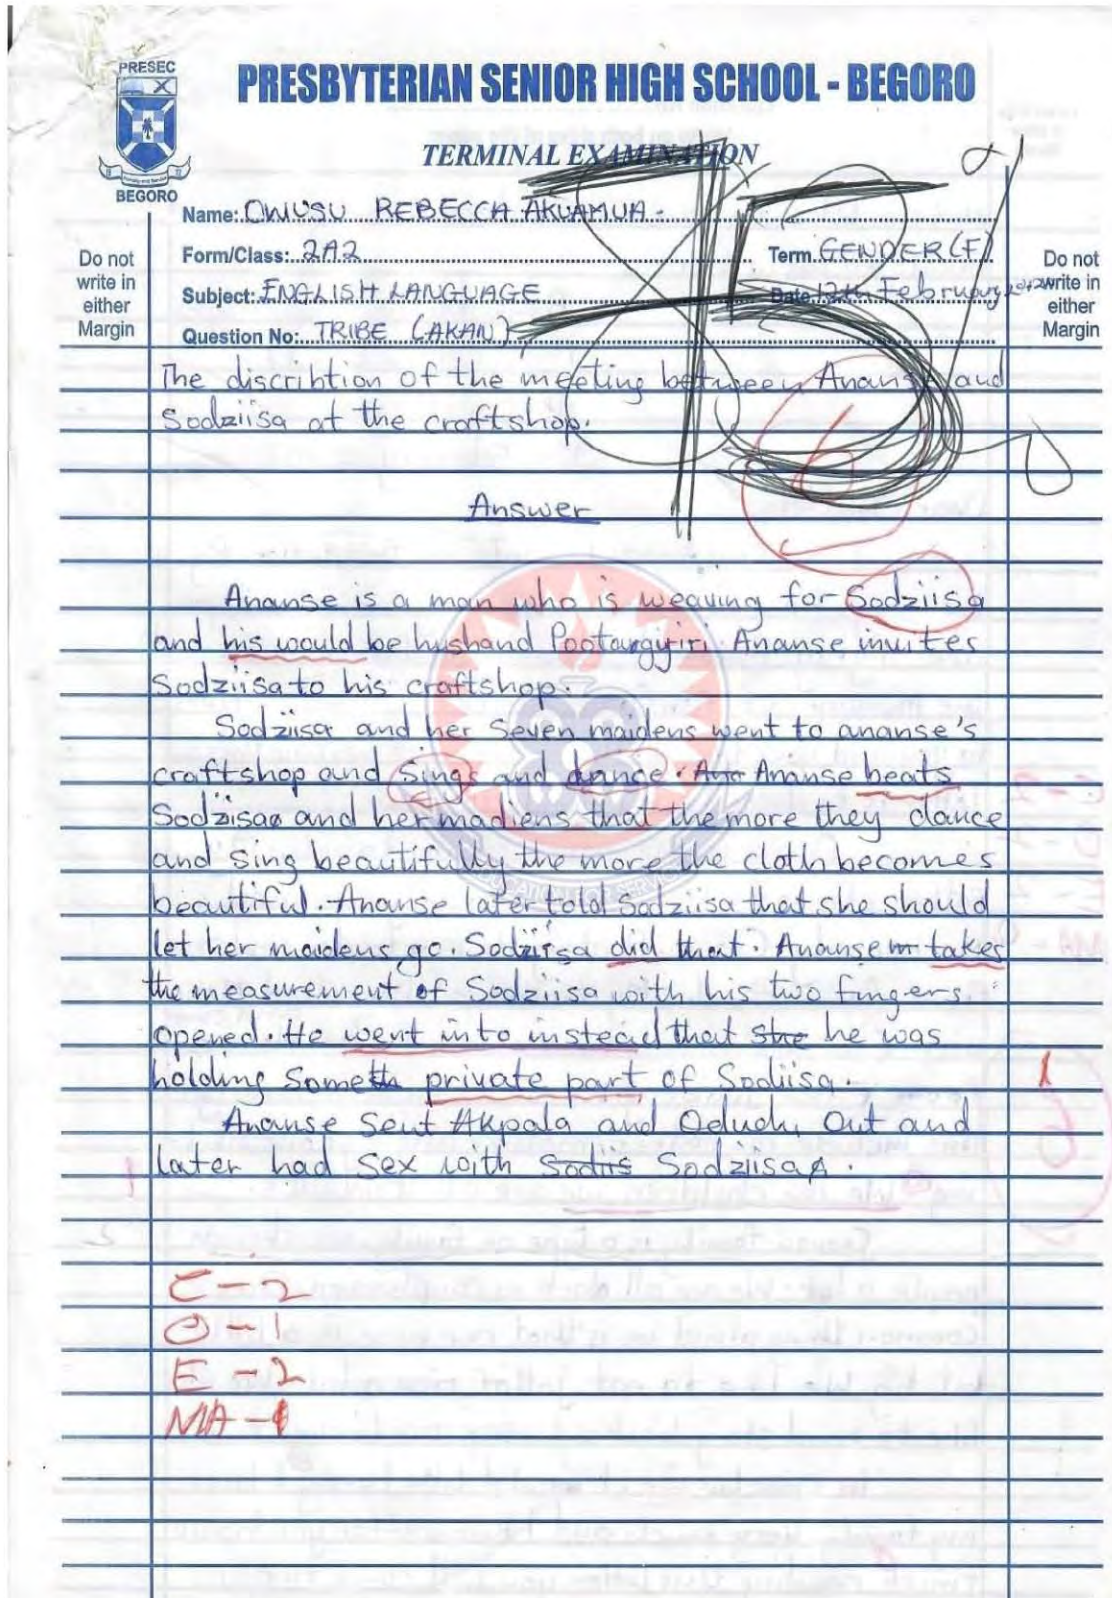 PRESEC
BEGORO
PRESBYTERIAN SENIOR HIGH SCHOOL - BEGORO
TERMINAL EXAMINATION
Name: OWUSU REBECCA AKUAMUA.
Form/Class: 2A2 Term GENDER (F)
Subject: ENGLISH LANGUAGE Date 12th February
Question No: TRIBE (AKAN)
Do not
write in
either
Margin
Do not
write in
either
Margin
The discribtion of the meeting between Ananse and
Sodziisa at the craftshop.
6
Answer
Ananse is a man who is weaving for Sodziisa
and his would be hushand Pootangiriri. Ananse invites
Sodziisa to his craftshop.
Sodziisa and her Seven maidens went to ananse's
craftshop and Sings and dance. Ananse beats
Sodziisa and her madiens that the more they dance
and sing beautifully the more the cloth becomes
beautiful. Ananse later told Sodziisa that she should
let her maidens go. Sodziisa did that. Ananse takes
the measurement of Sodziisa with his two fingers
opened. He went into instead that she he was
holding Some private part of Sodiisa.
Ananse Sent Akpala and Out and
later had Sex with Sodiis Sodziisa.
C - 2
O - 1
E - 2
MA - 1